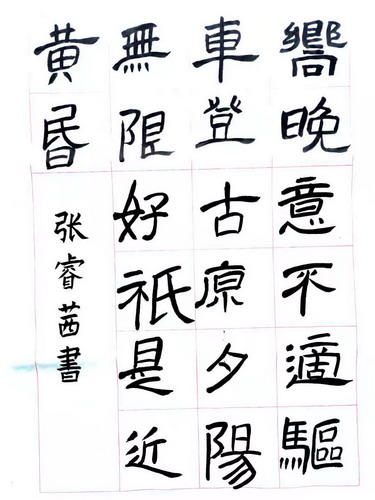 嚮晚意不適驅
車登古原夕陽
無限好祇是近
黄昬
张睿茜書